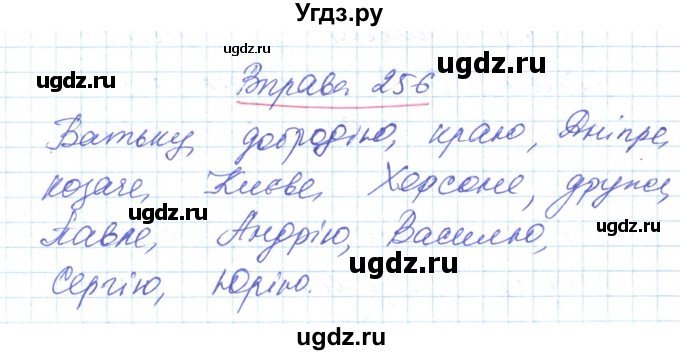 Угдз.ру
ugdz.ru ugdz.ru
Вправа 256
ugdz.ru ugdz.ru
Батьку, добродію, краю, Дніпре,
козаче, Києве, Херсоне, друже,
ugdz.ru ugdz.ru
Павле, Андрію, Василю,
ugdz.ru
Сергію, Юрію.
ugdz.ru